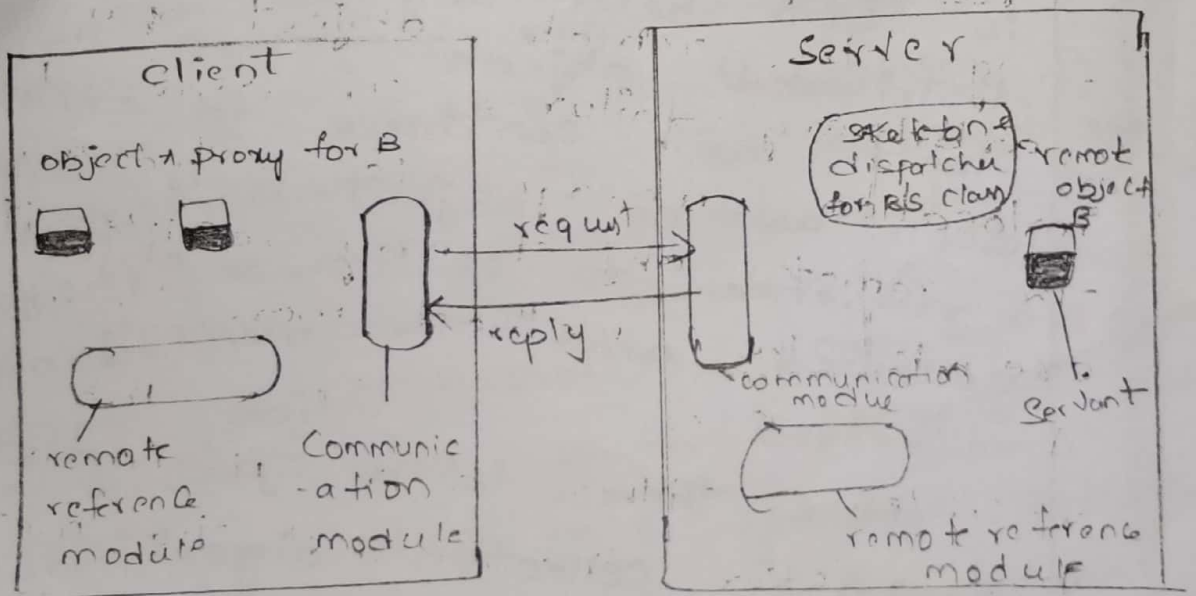 client
object A proxy for B
request
reply
remote
reference
module
Communic
-ation
module
Server
skeleton &
dispatcher
for B's class
remot
object
B
communication
modue
servant
remote reference
module